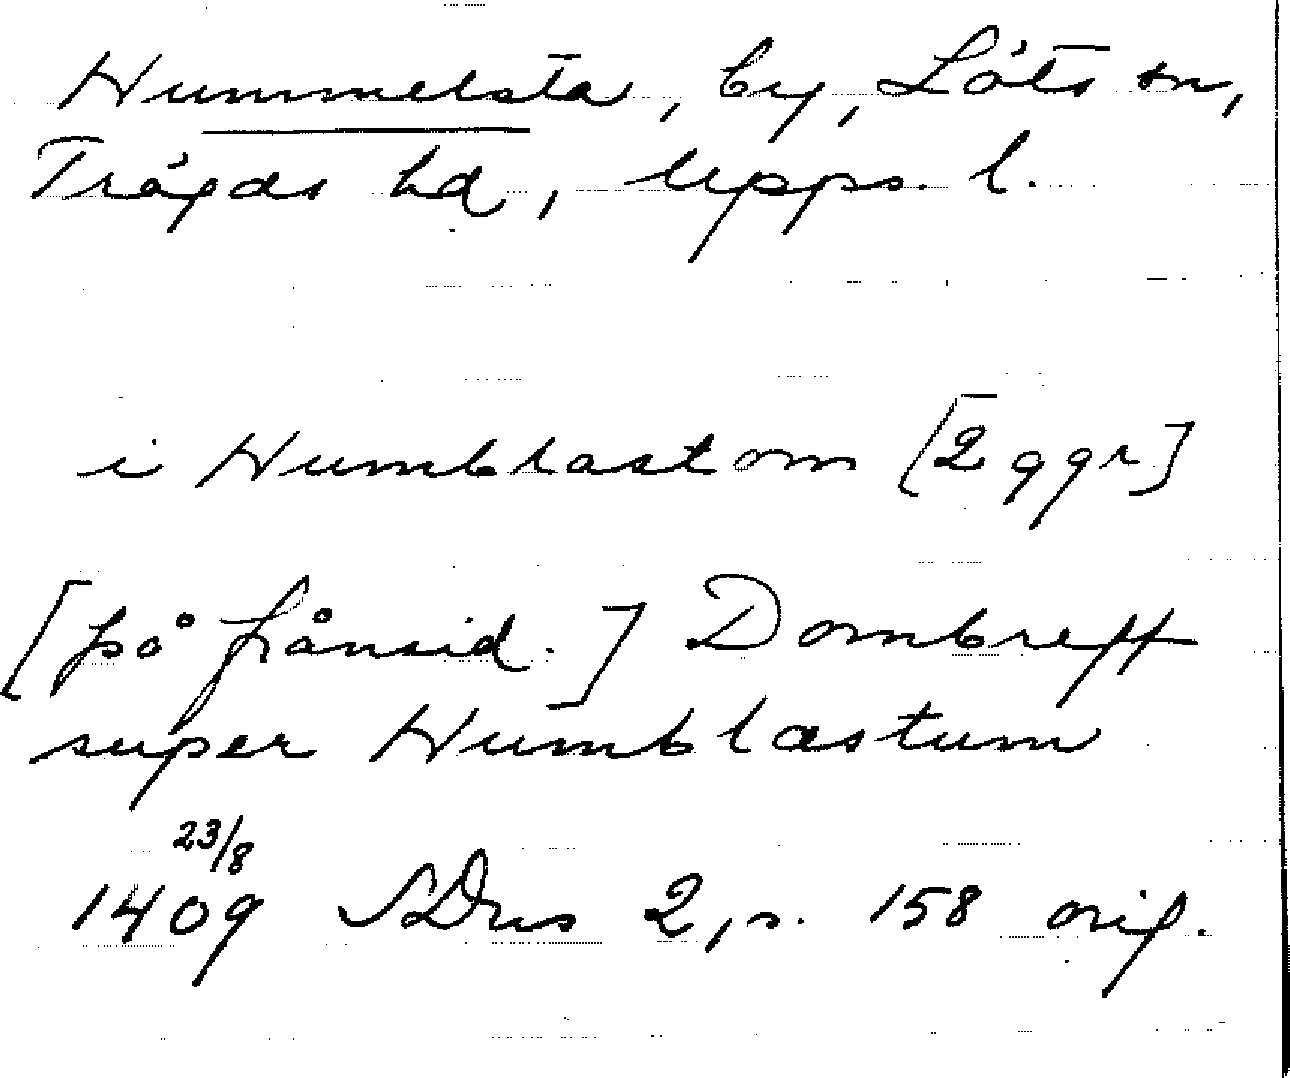 Hummelsta, by, Löts sn,
Trögds hd, Upps. l.
i Humblastom [2 ggr]
[på frånsid.] Dombreff
super Humblastum
23/8
1409 SDns 2, s. 158 orig.